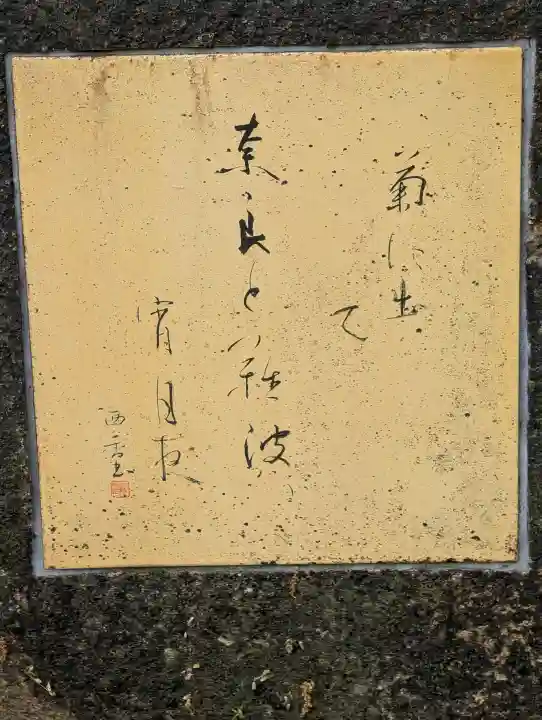 菊に出
て
奈良と難波は
宵月夜